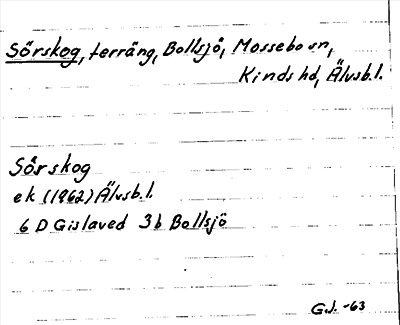 Sörskog, terräng, Bollsjö, Mossebo sn,
Kinds hd, Älvsb.l.
Sörskog
ek (1962) Älvsb.l.
6 D Gislaved 3b Bollsjö
G.J. -63